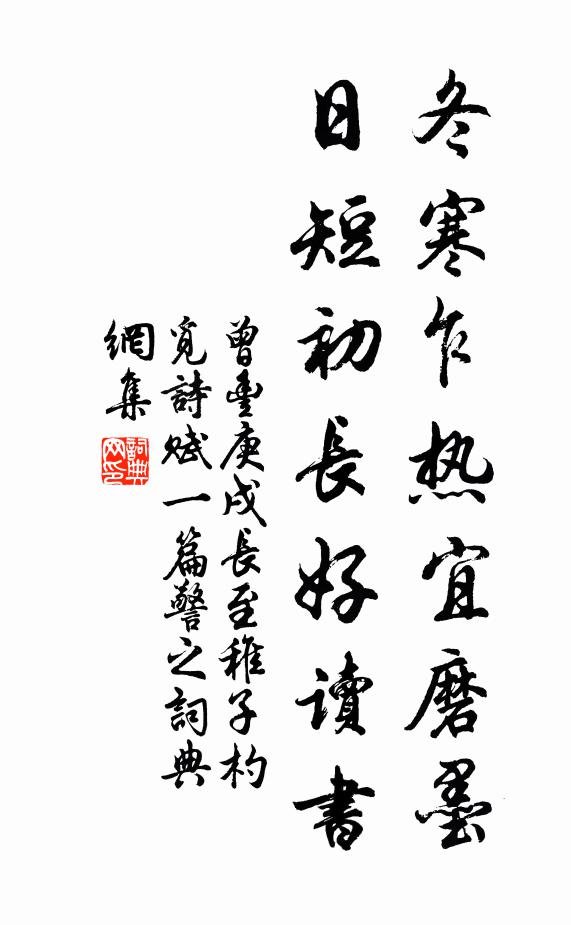 冬寒乍热宜磨墨
日短初長好讀書
曾豊庚戌長至稚子杓
覓詩賦一篇警之詞典
網集
詞典
网印